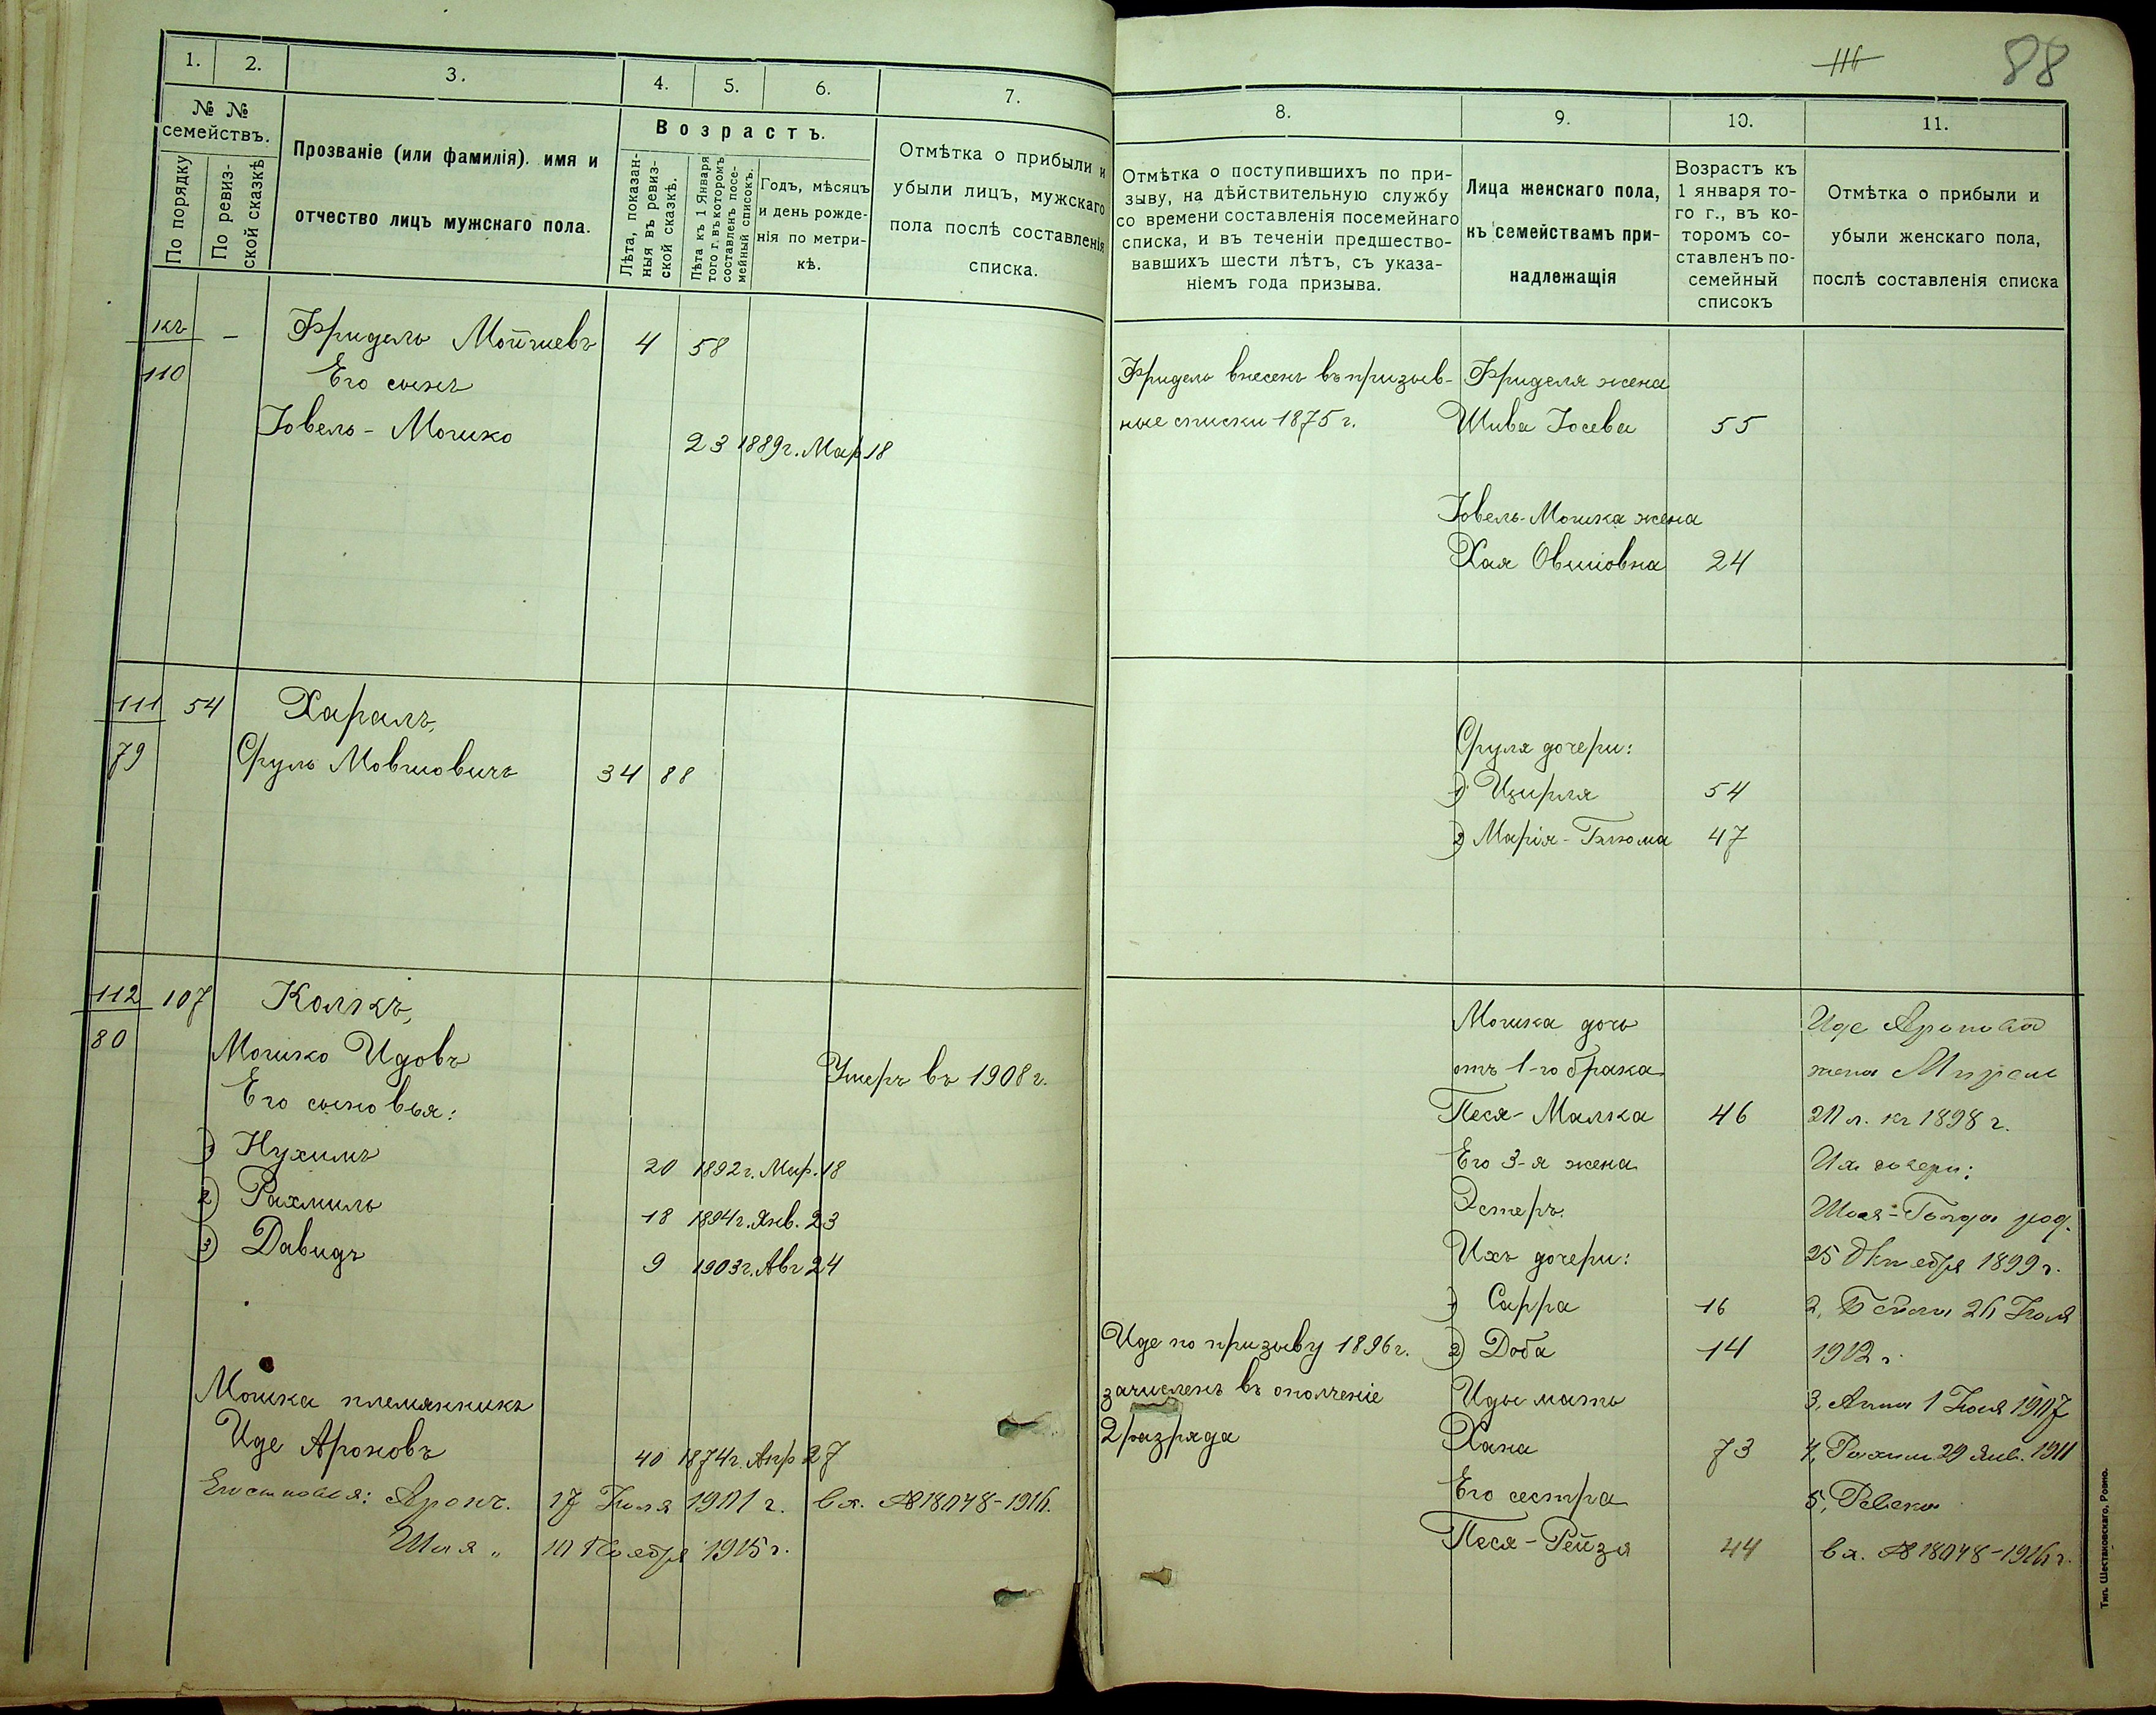 1.
2.
3.
4.
5.
6.
7.
№ №
семействъ.
По порядку
По ревиз-
ской сказкѣ
Прозваніе (или фамилія). имя и
отчество лицъ мужскаго пола.
Возрастъ.
Лѣта, показан-
ныя въ ревиз-
ской сказкѣ.
Лѣта къ 1 Января
того г. въ которомъ
составленъ посе-
мейный списокъ.
Годъ, мѣсяцъ
и день рожде-
нія по метри-
кѣ.
Отмѣтка о прибыли и
убыли лицъ, мужскаго
пола послѣ составленія
списка.
къ
110
–
Фридель Мойшевъ 4 58
Его сынъ
Іовель-Мошко 23 1889г. Мар 18
111 54 Харалъ,
79 Сруль Мовшовичъ 34 88
112 107 Колкъ,
80 Мошко Идовъ Умеръ въ 1908 г.
Его сыновья:
1) Нухимъ 20 1892г. Мар. 18
2) Рахмиль 18 1894г. Янв. 23
3) Давидъ 9 1903г. Авг 24
Мошка племянникъ
Иде Ароновъ 40 1874г. Апр 27
Его сыновья: Аронъ. 17 Іюля 1901 г. вх. №18048-1916.
Шая " 10 Ноября 1915 г.
116
88
8.
9.
10.
11.
Отмѣтка о поступившихъ по при-
зыву, на дѣйствительную службу
со времени составленія посемейнаго
списка, и въ теченіи предшество-
вавшихъ шести лѣтъ, съ указа-
ніемъ года призыва.
Лица женскаго пола,
къ семействамъ при-
надлежащія
Возрастъ къ
1 января то-
го г., въ ко-
торомъ со-
ставленъ по-
семейный
списокъ
Отмѣтка о прибыли и
убыли женскаго пола,
послѣ составленія списка
Фридель внесенъ въ призыв-
ные списки 1875 г.
Фриделя жена
Шива Іосева 55
Іовель-Мошка жена
Хая Овшіовна 24
Сруля дочери:
1) Цирля 54
2) Марія-Блюма 47
Мошка дочь
отъ 1-го брака
Песя-Малка 46
Его 3-я жена
Эстеръ.
Ихъ дочери:
1) Сарра 16
2) Доба 14
Иды мать
Хана 73
Его сестра
Песя-Рейзя 44
Иде по призыву 1896г.
зачисленъ въ ополченіе
2 разряда
Иде Аронова
жена
20 л. къ 1898 г.
Ихъ дочери:
25 Октября 1899 г.
2, 26 Іюля
3, 1 Іюля 1907
4, 20 Янв. 1911
5, Ревека
вх. №18048-1916 г.
Тип. Шестаковскаго, Ровно.